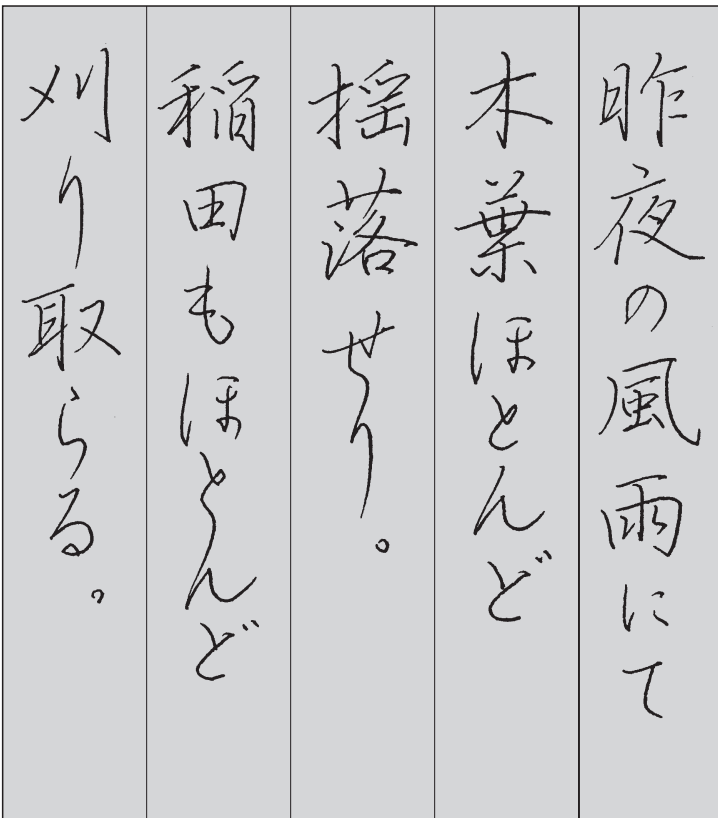 昨夜の風雨にて
木葉ほとんど
揺落せり。
稲田もほとんど
刈り取らる。